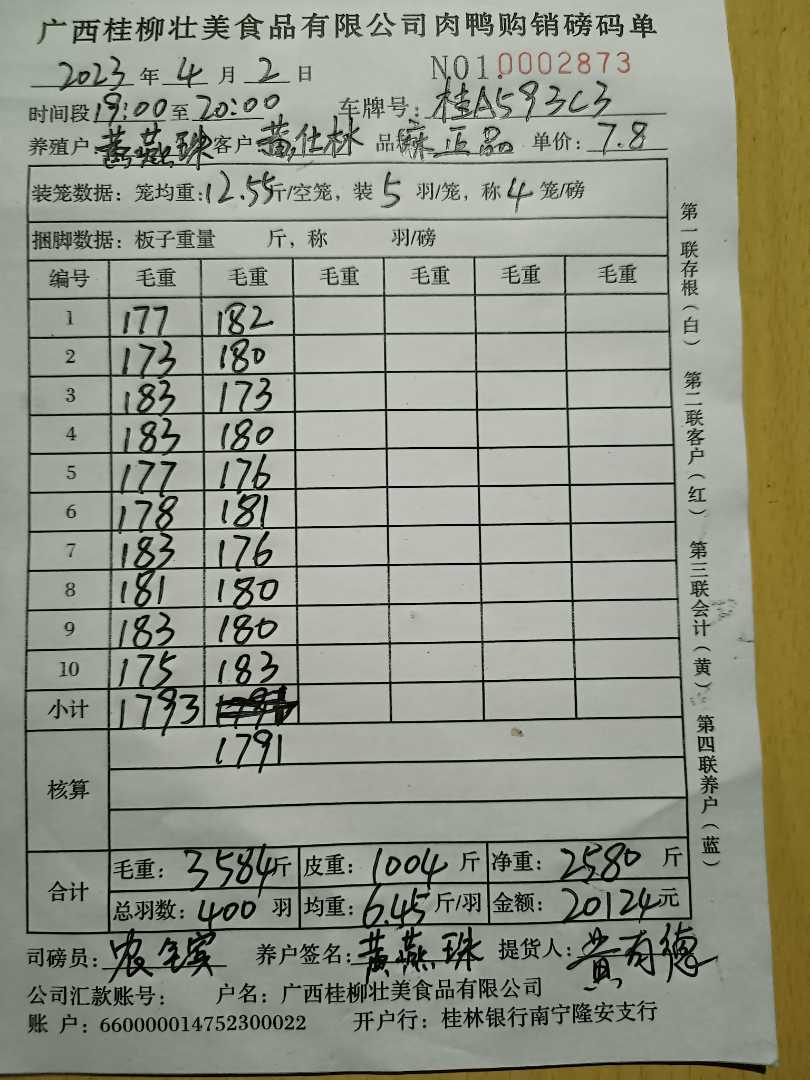 广西桂柳壮美食品有限公司肉鸭购销磅码单
2023 年 4 月 2 日 NO1.0002873
时间段 19:00 至 20:00 车牌号：桂A593C3
养殖户 黄燕珠 客户 黄仕林 品 麻正品 单价：7.8
装笼数据：笼均重：12.55 斤/空笼，装 5 羽/笼，称 4 笼/磅
捆脚数据：板子重量 斤，称 羽/磅
编号 毛重 毛重 毛重 毛重 毛重 毛重
1 177 182
2 173 180
3 183 173
4 183 180
5 177 176
6 178 181
7 183 176
8 181 180
9 183 180
10 175 183
小计 1793
核算 1791
合计 毛重：3584 斤 皮重：1004 斤 净重：2580 斤
总羽数：400 羽 均重：6.45 斤/羽 金额：20124 元
司磅员： 养户签名：黄燕珠 提货人：黄有德
公司汇款账号： 户名：广西桂柳壮美食品有限公司
账 户：660000014752300022 开户行：桂林银行南宁隆安支行
第一联存根（白） 第二联客户（红） 第三联会计（黄） 第四联养户（蓝）